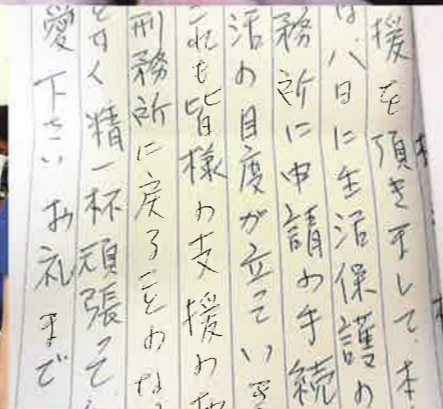 援を頂きまして、本
は、八日に生活保護の
務所に申請の手続
活の目度が立ってい
これも皆様の支援の
刑務所に戻ることのな
となく精一杯頑張って
愛下さい お礼まで